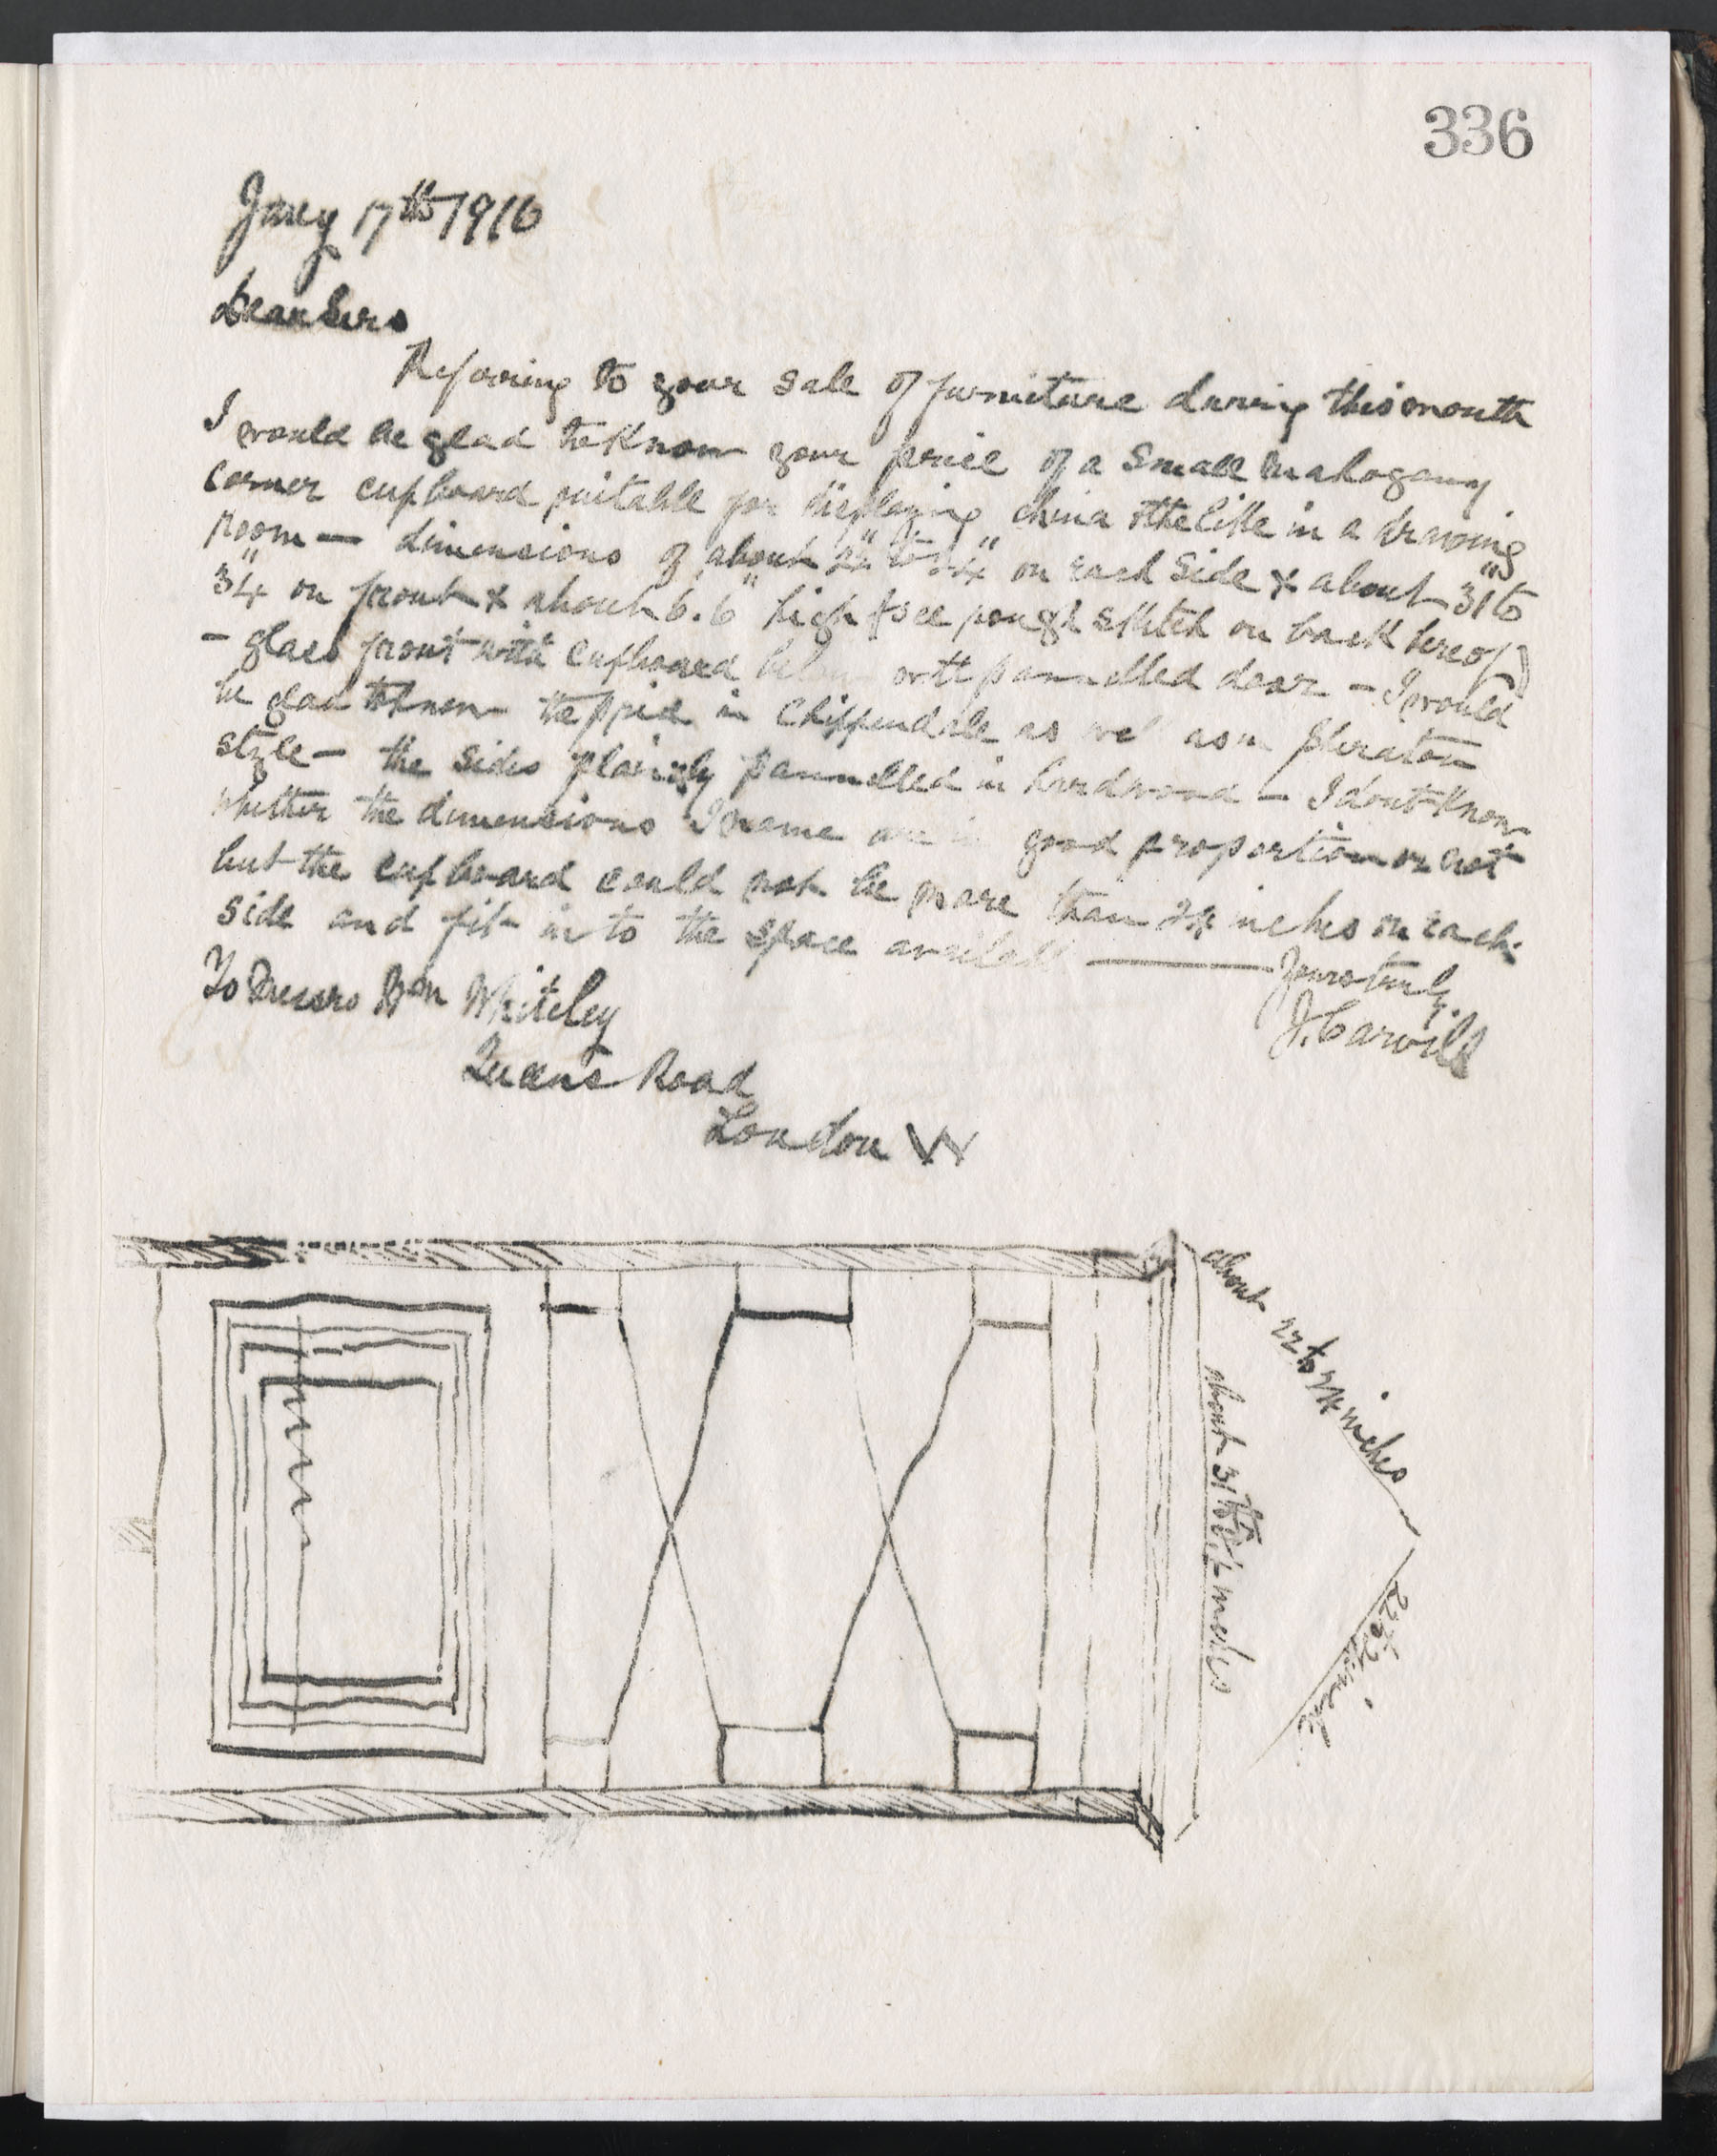 336
Jany 17th 1916
Dear Sirs
Referring to your sale of furniture during this month
I would be glad to know your price of a small mahogany
corner cupboard suitable for displaying china & the like in a drawing
room — dimensions of about 22" to 24" on each side & about 31" to
34" on front & about 6.6" high (see rough sketch on back hereof)
— glass front with cupboard below with pannelled door — I would
be glad to know the price in Chippendale as well as in Sheraton
style — the sides plainly pannelled in hardwood — I dont know
whether the dimensions I name are in good proportion or not
but the cupboard could not be more than 24 inches on each
side and fit in to the space available — Yours truly
J. Carvill
To Messrs Wm Whiteley
Queens Road
London W
about 22 to 24 inches
about 31 to 34 inches
22 to 24 inches